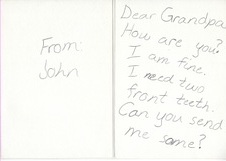 From:
John
Dear Grandpa
How are you?
I am fine.
I need two
front teeth.
Can you send
me some?